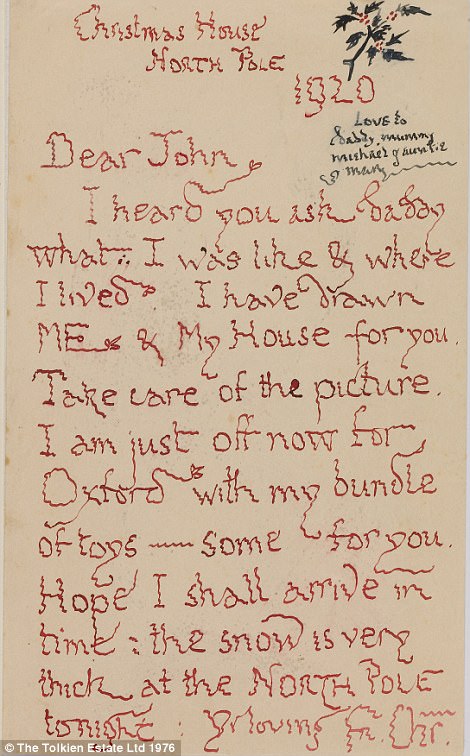 Christmas House
North Pole
1920
Love to
daddy, mummy
michael & auntie
& mary
Dear John
I heard you ask daddy
what I was like & where
I lived. I have drawn
ME & My House for you.
Take care of the picture.
I am just off now for
Oxford with my bundle
of toys — some for you.
Hope I shall arrive in
time: the snow is very
thick at the NORTH POLE
tonight. Yr loving Fr. Chr.
© The Tolkien Estate Ltd 1976